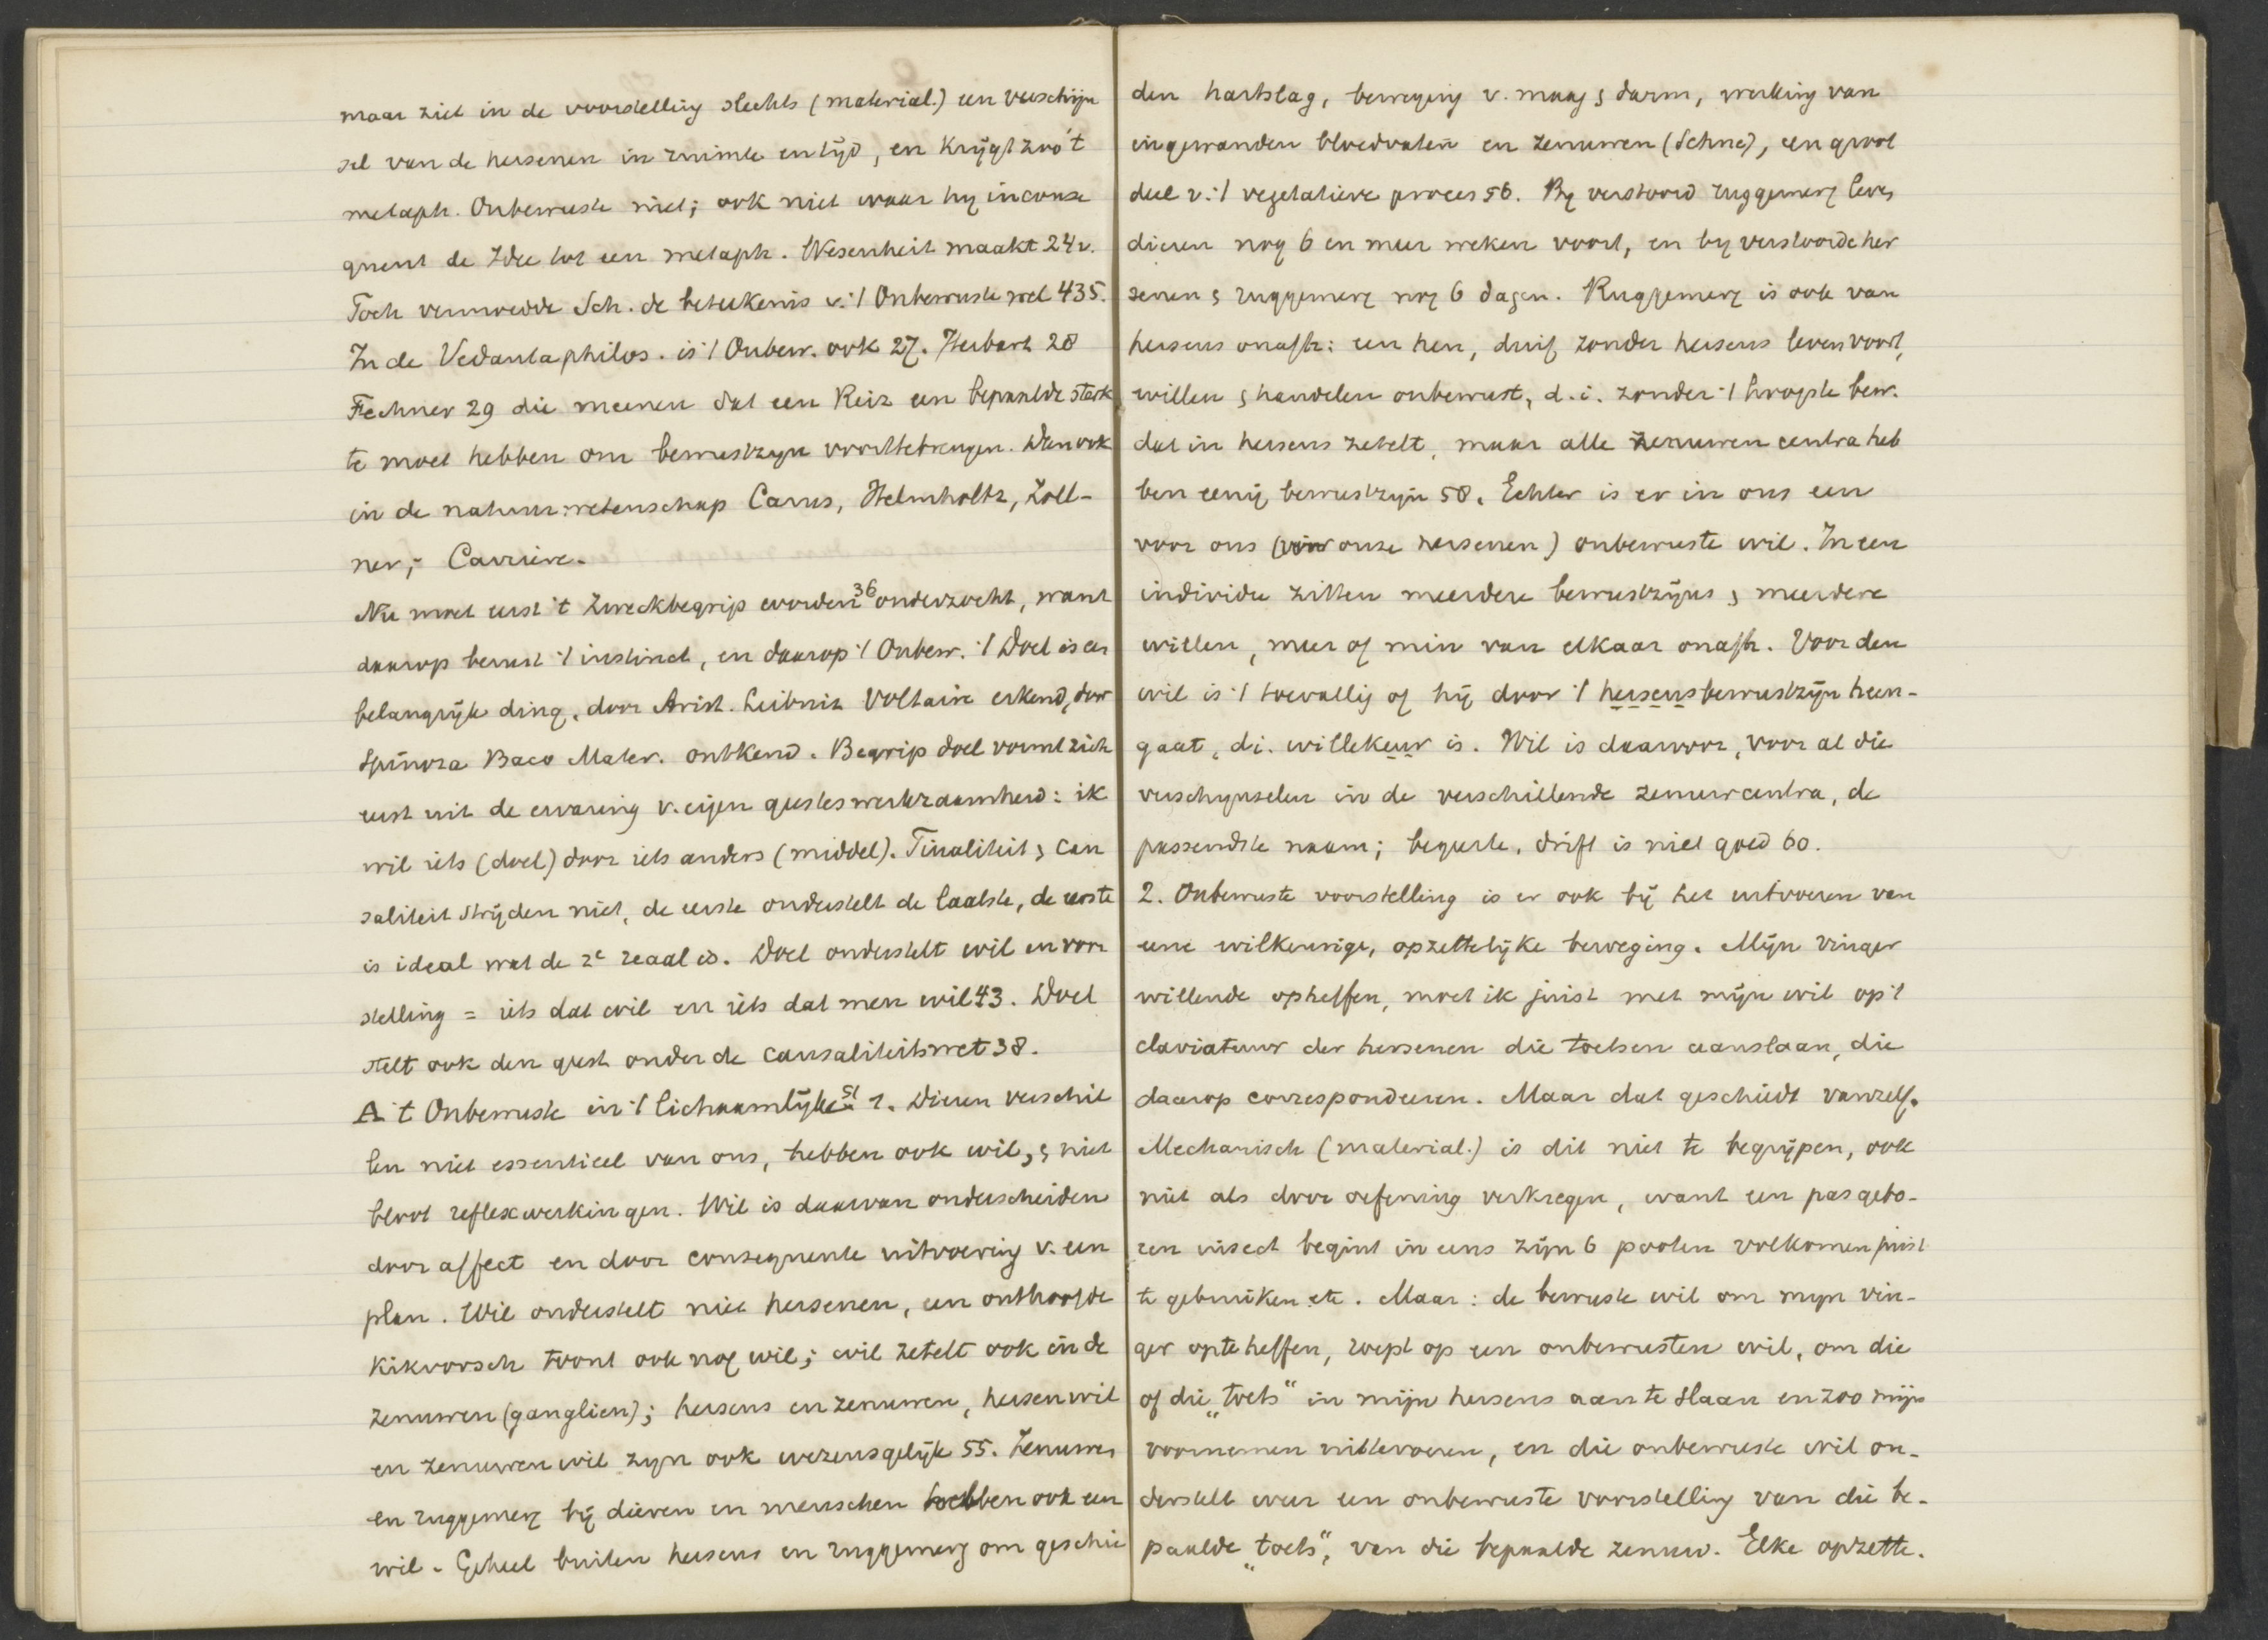 maar ziet in de voorstelling slechts (material.) een verschijn
sel van de hersenen in ruimte en tijd, en krijgt zoo 't
metaph. Onbewuste niet; ook niet waar hy inconse
quent de Idee tot een metaph. Wesenheit maakt 24v.
Toch vermoedde Sch. de beteekenis v. 't Onbewuste wel 435.
In de Vedantaphilos. is 't Onbew. ook 27. Herbart 28
Fechner 29 die meenen dat een Reiz een bepaalde sterk
te moet hebben om bewustzyn voorttebrengen. Dan ook
in de natuurwetenschap Carus, Helmholtz, Zöll-
ner; Carriere.
Nu moet eerst 't Zweckbegrip worden 36 onderzocht, want
daarop berust 't instinct, en daarop 't Onbew. 't Doel is een
belangrijk ding, door Arist. Leibniz Voltaire erkend, door
Spinoza Baco Mater. ontkend. Begrip doel vormt zich
eerst uit de ervaring v. eigen geesteswerkzaamheid: ik
wil iets (doel) door iets anders (middel). Finaliteit & Cau
saliteit strijden niet, de eerste onderstelt de laatste, de eerste
is ideaal wat de 2e reaal is. Doel onderstelt wil en voor
stelling = iets dat wil en iets dat men wil 43. Doel
stelt ook den geest onder de causaliteitswet 38.
A 't Onbewuste in 't lichaamlijke 51. 1. Dieren verschil
len niet essentieel van ons, hebben ook wil, & niet
bloot reflexwerkingen. Wil is daarvan onderscheiden
door affect en door consequente uitvoering v. een
plan. Wil onderstelt niet hersenen, een onthoofde
kikvorsch toont ook nog wil; wil zetelt ook in de
zenuwen (ganglien); hersens en zenuwen, hersenwil
en zenuwenwil zyn ook wezensgelijk 55. Zenuwen
en ruggemerg bij dieren en menschen hebben ook een
wil. Geheel buiten hersens en ruggemerg om geschie
den hartslag, beweging v. maag & darm, werking van
ingewanden bloedvaten en zenuwen (Sehne), een groot
deel v. 't vegetatieve proces 56. By verstoord ruggemerg leven
dieren nog 6 en meer weken voort, en by verstoorde her
senen & ruggemerg nog 6 dagen. Ruggemerg is ook van
hersens onafh: een hen, duif zonder hersens leven voort,
willen & handelen onbewust, d.i. zonder 't hoogste bew.
dat in hersens zetelt, maar alle zenuwen centra heb
ben eenig bewustzyn 58. Echter is er in ons een
voor ons (voor onze hersenen) onbewuste wil. In een
individu zitten meerdere bewustzijns & meerdere
willen, meer of min van elkaar onafh. Voor den
wil is 't toevallig of hij door 't hersensbewustzijn heen-
gaat, di. willekeur is. Wil is daarvoor, voor al die
verschynselen in de verschillende zenuwcentra, de
passendste naam; begeerte, drift is niet goed 60.
2. Onbewuste voorstelling is er ook bij het uitvoeren van
eene wilkeurige, opzettelijke beweging. Mijn vinger
willende opheffen, moet ik juist met mijn wil op 't
claviatuur der hersenen die toetsen aanslaan, die
daarop correspondeeren. Maar dat geschiedt vanzelf.
Mechanisch (material.) is dit niet te begrijpen, ook
niet als door oefening verkregen, want een pas gebo-
ren insect begint in eens zijn 6 pooten volkomen juist
te gebruiken etc. Maar: de bewuste wil om myn vin-
ger opteheffen, roept op een onbewusten wil, om die
of die „toets“ in mijn hersens aan te slaan en zoo mijn
voornemen uittevoeren, en die onbewuste wil on-
derstelt weer een onbewuste voorstelling van die be-
paalde „toets“, van die bepaalde zenuw. Elke opzette-